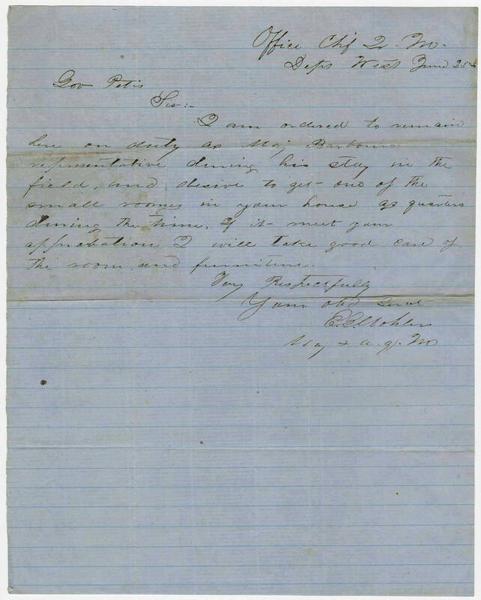 Office Chf Q. M.
Dept West June 25
Gov Petis
Sir:-
I am ordered to remain
here on duty as Maj Barbours
representative during his stay in the
field, and desire to get one of the
small rooms in your house as quarters
during the time, if it meet your
approbation I will take good care of
the room and furniture.
Very Respectfully
Your obd Servt
Maj & A. Q. M